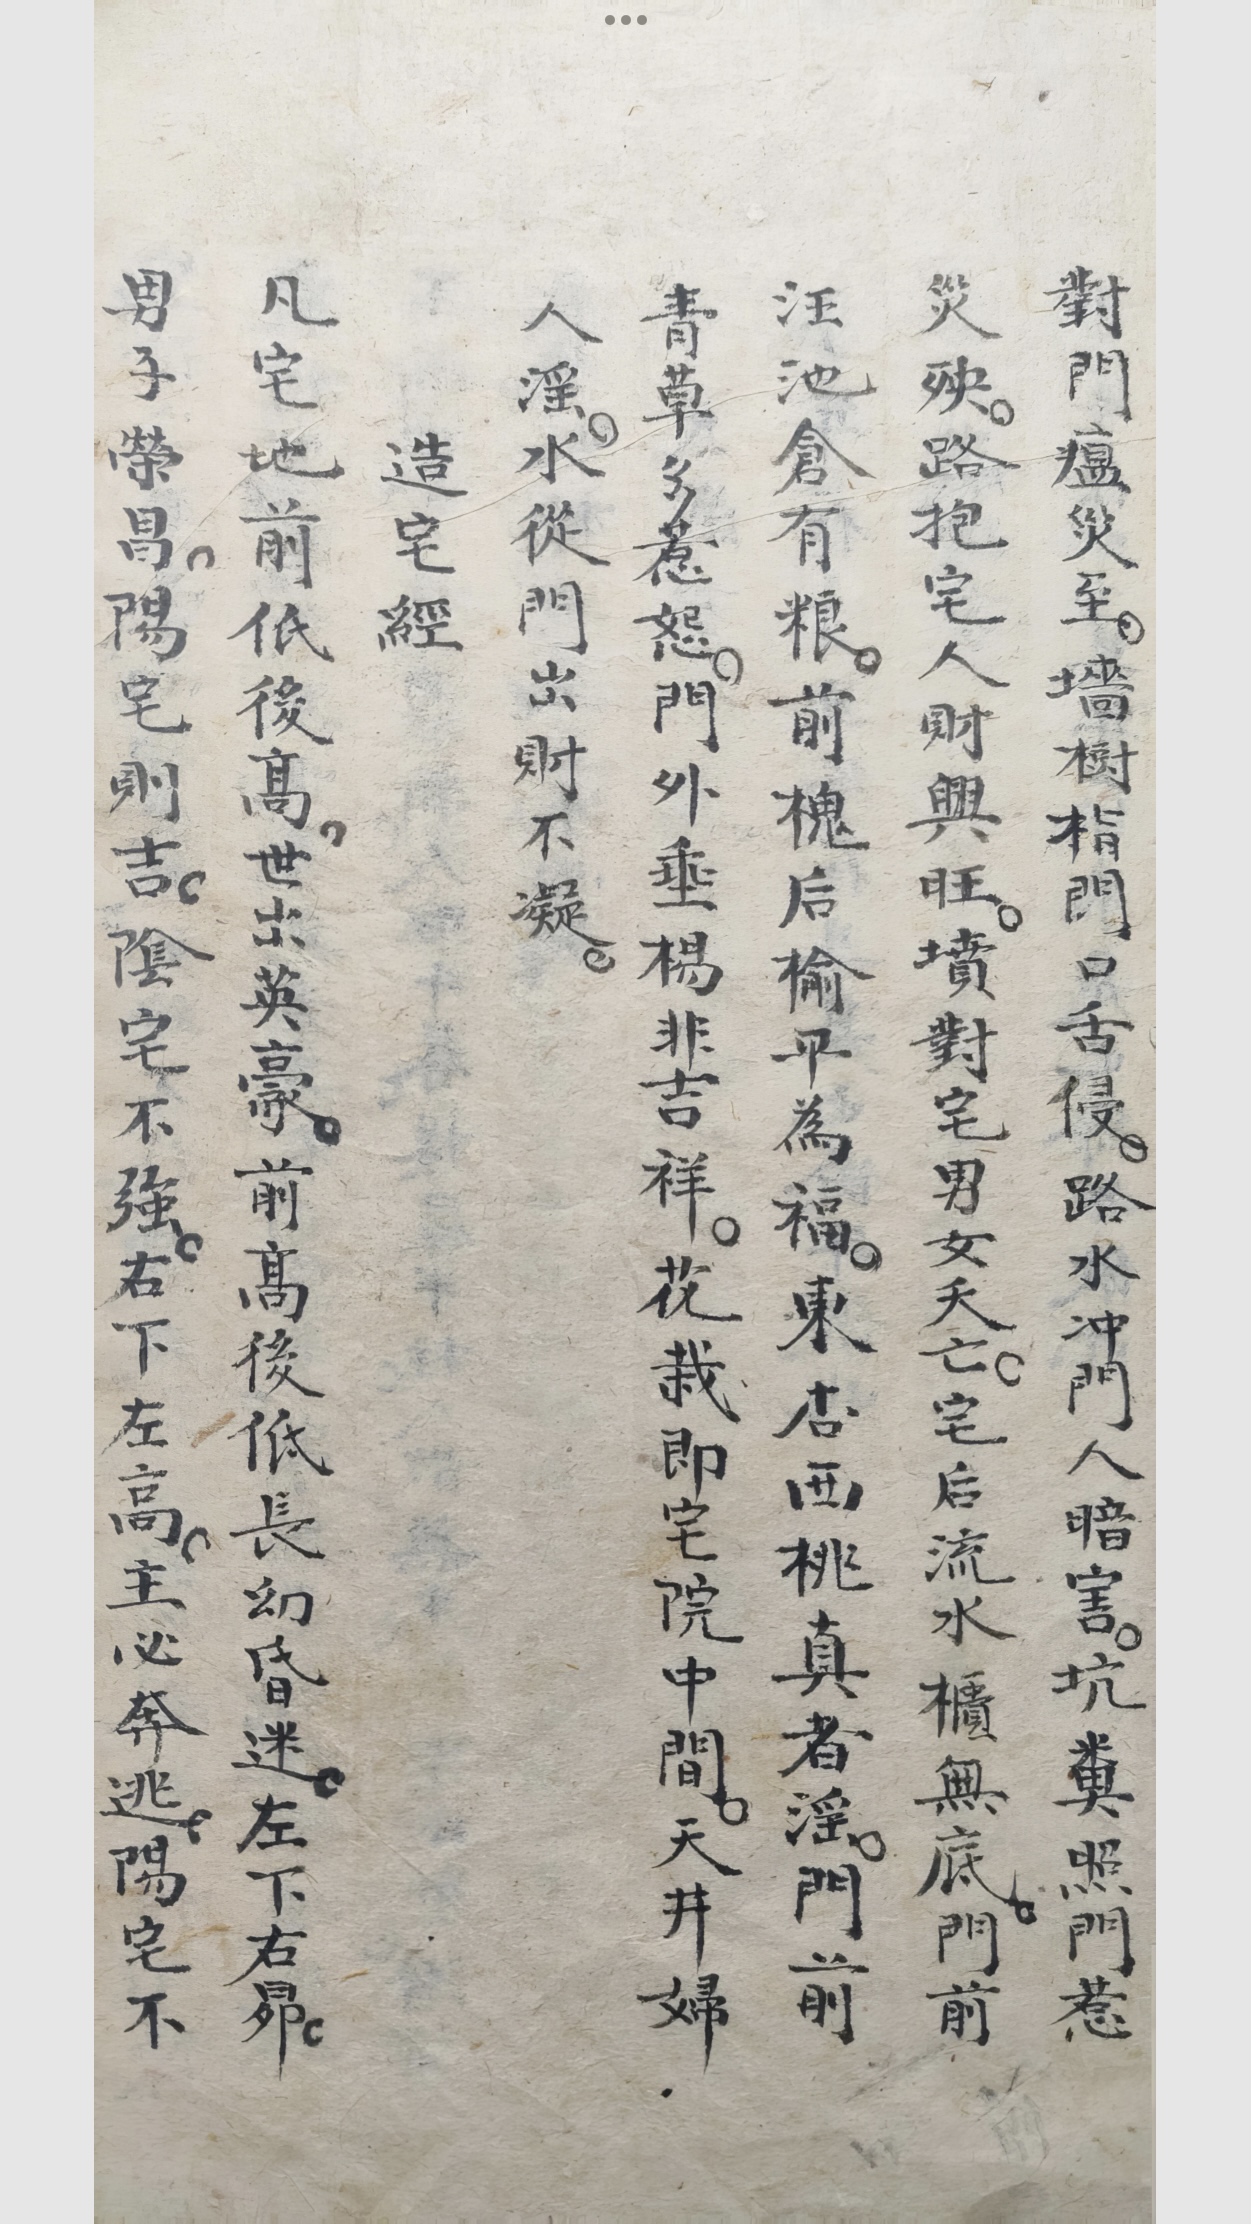 對門瘟災至。墻樹楷門口舌侵。路水冲門人暗害。坑糞照門惹
災殃。路抱宅人財興旺。墳對宅男女夭亡。宅后流水櫃無底。門前
汪池倉有粮。前槐后榆平為福。東杏西桃真者淫。門前
青草多惹怨。門外垂楊非吉祥。花栽即宅院中間。天井婦
人淫。水從門出財不凝。
造宅經
凡宅地前低後高。世出英豪。前高後低長幼昏迷。左下右昂。
男子榮昌。陽宅則吉。陰宅不強。右下左高。主必奔逃。陽宅不